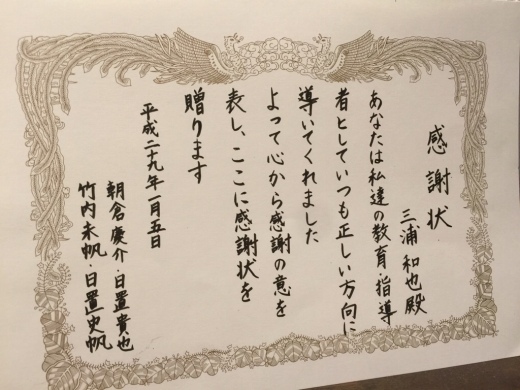 感謝状
三浦和也殿
あなたは私達の教育・指導
者としていつも正しい方向に
導いてくれました
よって心から感謝の意を
表し、ここに感謝状を
贈ります
平成二十九年一月五日
朝倉慶介・日置貴也
竹内未帆・日置史帆